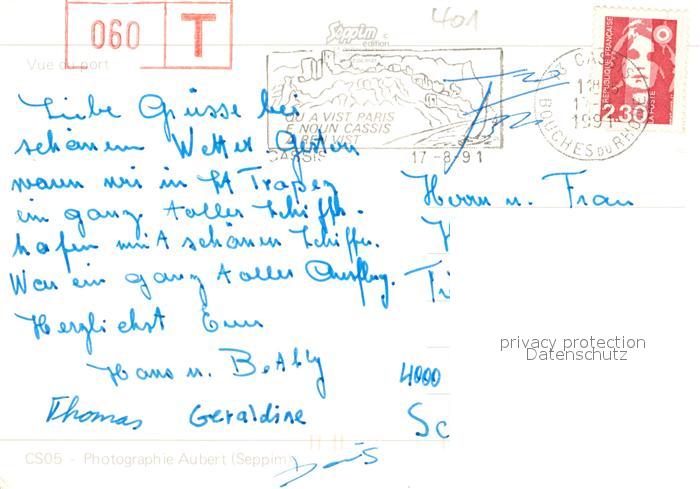 060 T
401
Seppim
édition
Vue du port
QU'A VIST PARIS
E NOUN CASSIS
A REN VIST
CASSIS 17-8-91
CASSIS
1991
BOUCHES DU RHONE
REPUBLIQUE FRANÇAISE
2.30 LA POSTE
Liebe Grüsse bei
schönem Wetter. Gestern
waren wir in St Tropez
ein ganz toller Schiffs-
hafen mit schönen Schiffen.
War ein ganz toller Ausflug.
Herzlichst Euer
Hans u. Bethly
Thomas Geraldine
Herrn u. Frau
4000
privacy protection
Datenschutz
CS05 - Photographie Aubert (Seppim)